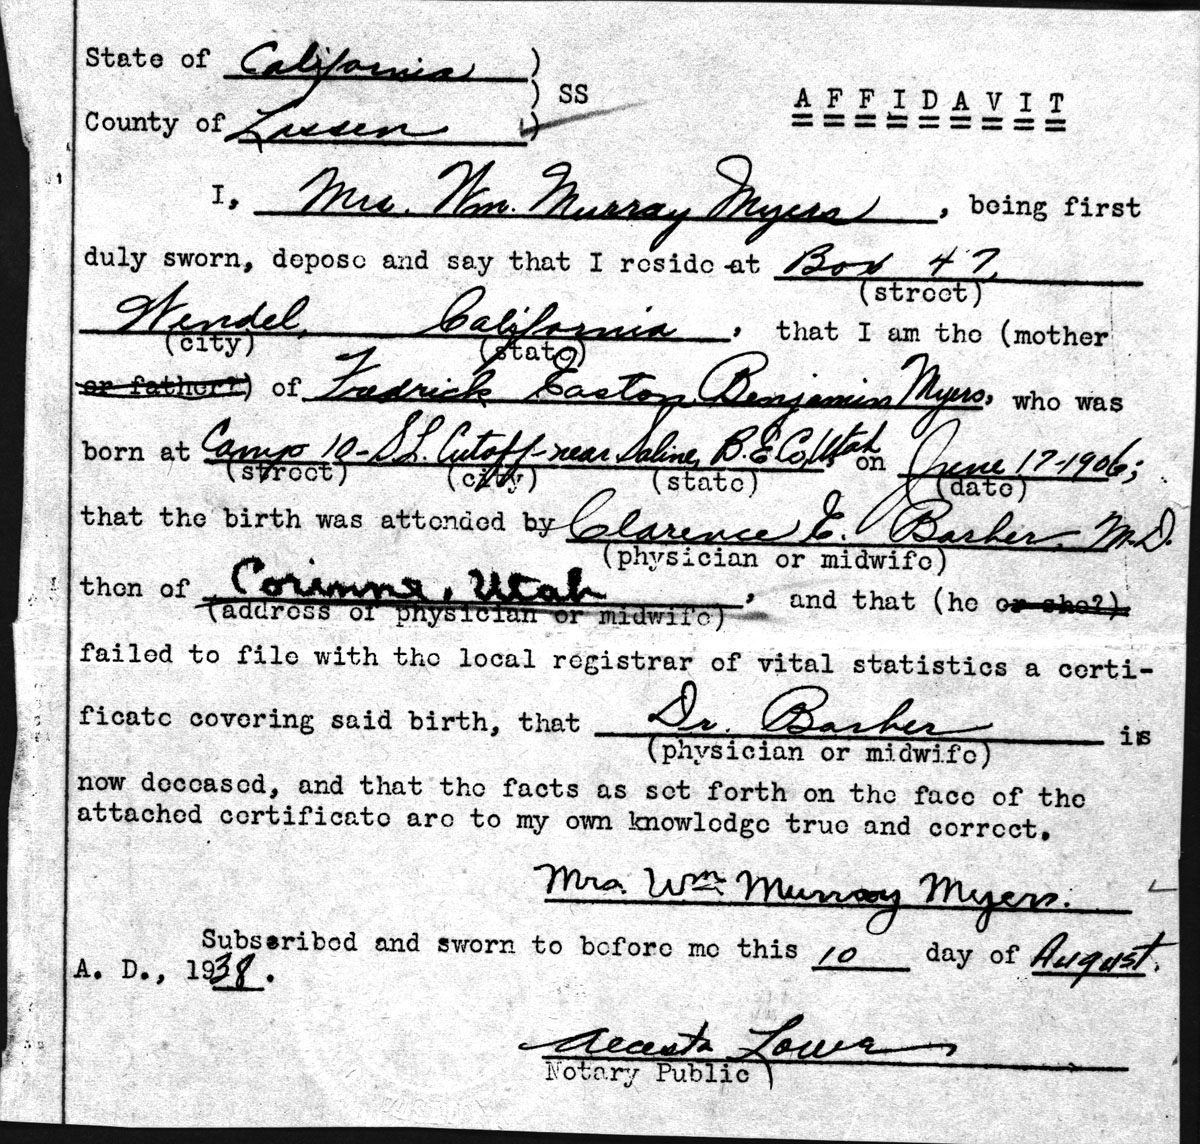 State of California )
) SS
County of Lassen )
AFFIDAVIT
I, Mrs. Wm. Murray Myers, being first
duly sworn, depose and say that I reside at Box 47,
(street)
Wendel, California, that I am the (mother
(city) (state)
or father?) of Fredrick Easton Benjamin Myers, who was
born at Camp 10-S.L. Cutoff-near Saline, B.E.Co, Utah on June 17-1906;
(street) (city) (state) (date)
that the birth was attended by Clarence E. Barber, M.D.
(physician or midwife)
then of Corinne, Utah, and that (he or she?)
(address of physician or midwife)
failed to file with the local registrar of vital statistics a certi-
ficate covering said birth, that Dr. Barber is
(physician or midwife)
now deceased, and that the facts as set forth on the face of the
attached certificate are to my own knowledge true and correct.
Mrs. Wm. Murray Myers.
Subscribed and sworn to before me this 10 day of August.
A. D., 1938.
Lowe
Notary Public